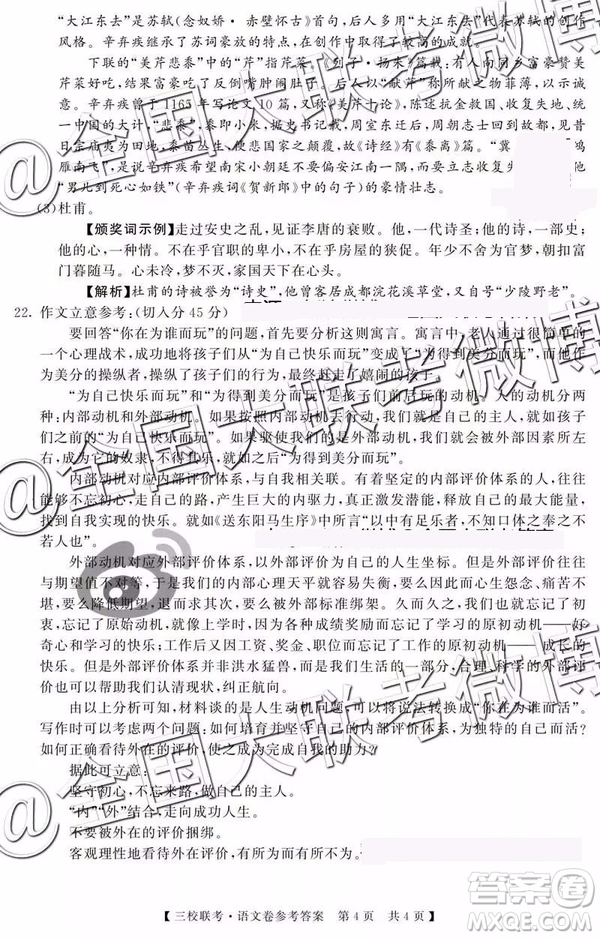 “大江东去”是苏轼(念奴娇·赤壁怀古》首句，后人多用“大江东去”代表苏轼的创作
风格。辛弃疾继承了苏词豪放的风格，在创作中取得了最高的成就。
下联的“美芹悲黍”中的“芹”指芹菜。《列子·杨朱》篇载：有人向同乡富豪赞美
芹菜好吃，结果富豪吃了反倒嘴肿闹肚子。后人以“献芹”称所献之物菲薄，以示诚
意。辛弃疾曾于1165年写论文10篇，又称《美芹十论》，陈述抗金救国、收复失地、统
一中国的大计，“悲黍”，据史书记载，周室东迁后，周朝志士重返故地，见昔
日宗庙夷为田地，黍苗丛生，感慨悲伤，于是《诗经》里就有《黍离》篇。“冀
雁南飞”，是说辛弃疾希望南宋小朝廷不要偏安江南一隅，而要收复失地，
“男儿到死心如铁”(辛弃疾词《贺新郎》中的句子)的豪情壮志。
(3)杜甫。
【颁奖词示例】走过安史之乱，见证李唐的衰败。他，一代诗圣；他的诗，一部史；
他，心系苍生，胸怀国事。不在乎官职的卑小，不在乎房屋的狭促。残羹冷炙，朝扣富
门暮随马。心未冷，梦不灭，家国天下在心间。
【解析】杜甫的诗被誉为“诗史”，他曾客居成都浣花溪草堂，又自号“少陵野老”。
22. 作文立意参考：(切入分45分)
要回答“你在为谁而玩”的问题，首先要分析这则寓言。寓言中，老人通过简单的
一个心理战术，成功地将孩子们从“为自己快乐而玩”变成了“为美分而玩”，而他作
为美分的操纵者，操纵了孩子们的行为，最终赶走了嬉闹的孩子。
“为自己快乐而玩”和“为美分而玩”是孩子们前后玩的动机。人的动机分两
种：内部动机和外部动机。如果按照内部动机去行动，我们就是自己的主人，就如孩子
们之前的“为自己快乐而玩”；如果驱使我们的是外部动机，我们就会被外部因素所左
右，成为它的奴隶，就如孩子们后来的“为美分而玩”。
内部动机对应内部评价体系，与自我相关联。有着坚定的内部评价体系的人，往往
能够不忘初心，走自己的路，产生巨大的内驱力，真正激发潜能，释放自我，享受到找
到自我实现的快乐。就如《送东阳马生序》中所言，“以中有足乐者，不知口体之奉之不
若人也”。
外部动机对应外部评价体系，以外部评价作为自己的人生坐标。但是外部评价往往
与期望值不对等，于是我们的内部心理天平就容易失衡，便会产生怨念、痛苦不
堪，要么降低期望，退而求其次；要么改变自己，被外部标准绑架。久而久之，我们忘记了初
衷，自然也背离了原初动机，就像上学后又因父母、老师的奖励忘了学习的原初动机——好
奇心和学习的快乐；工作后又因工资、奖金、职位而忘了工作的原初动机——成长的
快乐。但是外部评价体系并非洪水猛兽，它是社会生活的一部分，合理、科学的外部评
价体系，可以引领人走向自我反省，纠正航向。
由以上分析可知，材料谈的是人生动机问题，可以将说法转换成“你在为谁而活”。
写作时可以考虑两个问题：如何培育并坚守自己的内部评价体系，为独特的自己而活？
如何正确看待外在的评价，使之成为完成自我的助力？
据此可立意：
坚守初心，不忘来路，做自己的主人。
“内”“外”结合，走向成功人生。
不要被外在的评价捆绑。
客观理性地看待外在评价，有所为而有所不为。
【三校联考·语文卷参考答案 第4页 共4页】
@全国大联考微博
@全国大联考微博
@全国大联考微博
答案圈
MXQE.COM